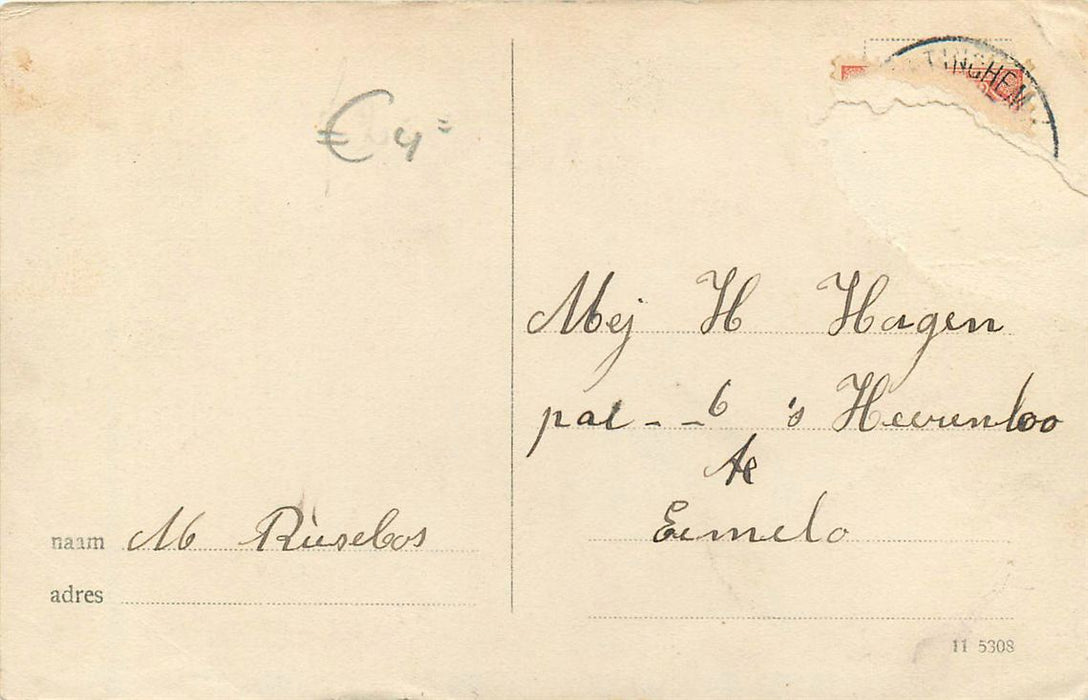 TINCHEM
€ 4=
Mej H Hagen
pal - - 6 's Heerenloo
te
Ermelo
naam M Rieselos
adres
11 5308